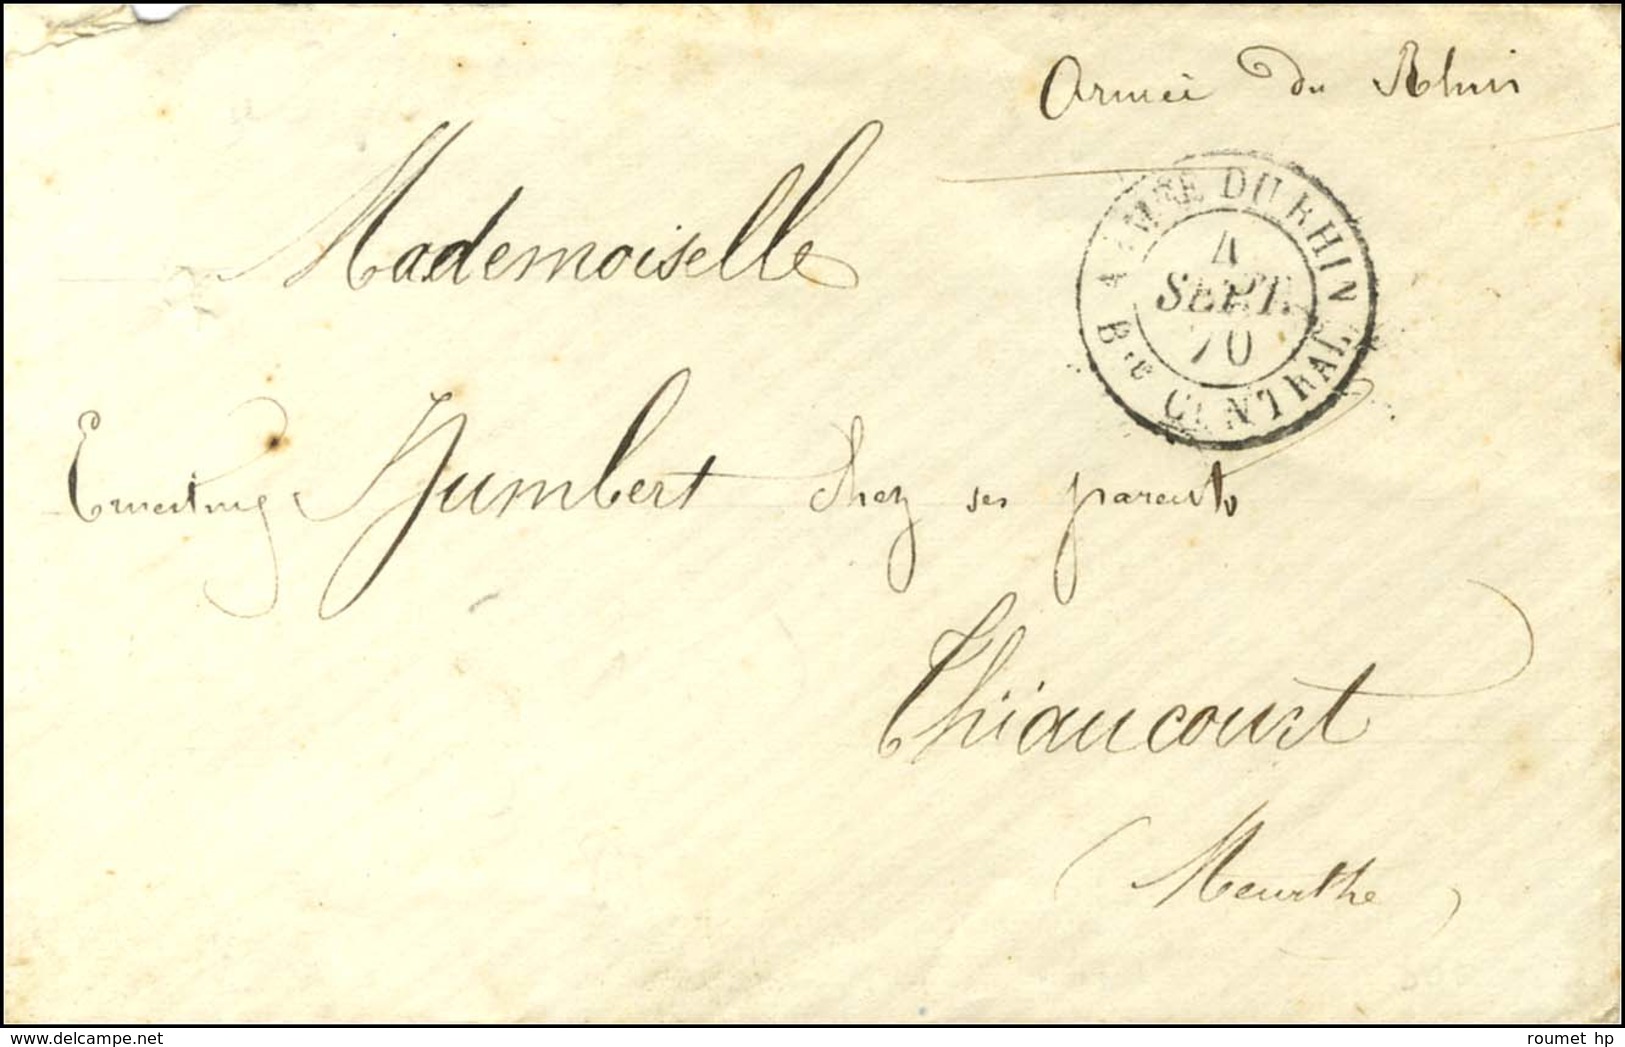 Armée du Rhin
ARMÉE DU RHIN
4
SEPT.
70
Bau CENTRAL
Mademoiselle
Ernestine Humbert chez ses parents
Thiaucourt
(Meurthe)
roumet hp